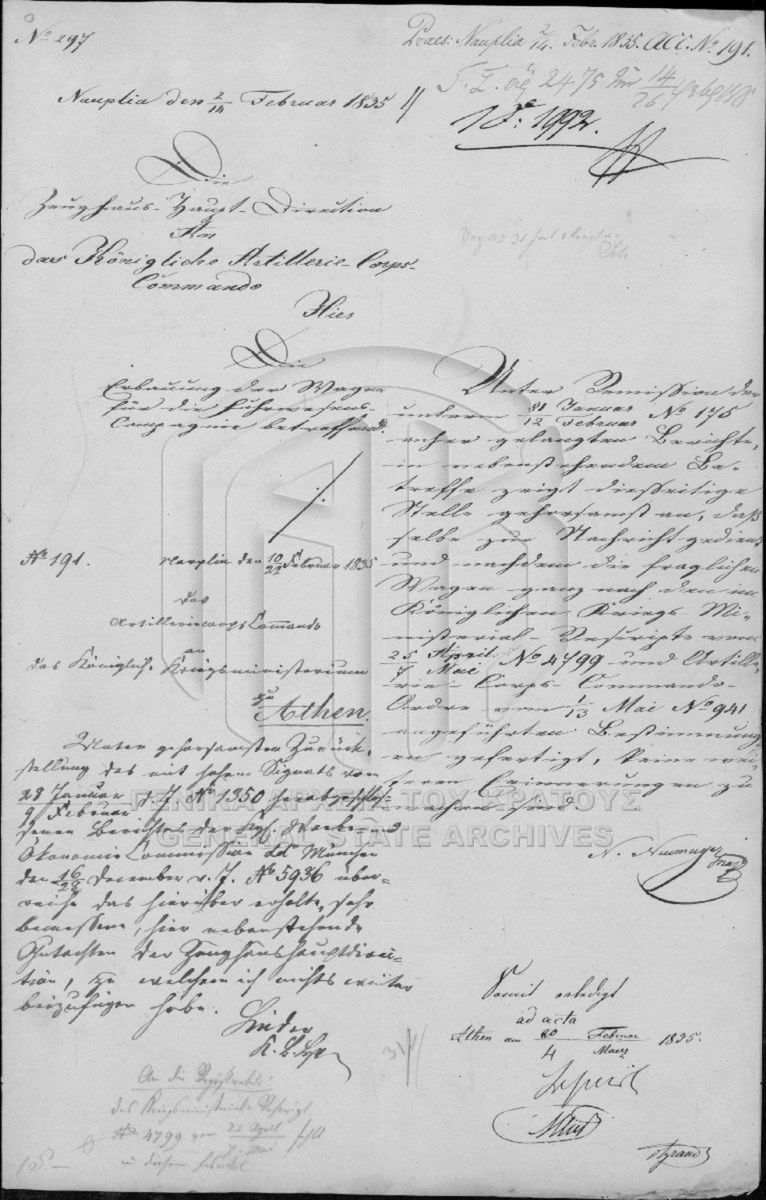 No 297
Praes: Nauplia 2/14. Febr. 1835. Acc. No 191.
Nauplia den 2/14 Februar 1835
No: 1992.
Die
Zeughaus-Haupt-Direction
An
das Königliche Artillerie-Corps-
Commando
Hier
Die
Erbauung der Wagen
für die Fuhrwesens-
Compagnie betreffend.
Unter Remission der
unterm 31 Januar / 12 Februar No 175
anher gelangten Berichte,
in nebenstehendem Be-
treffe zeigt diesseitige
Stelle gehorsamst an, daß
selbe zur Nachricht gedient
und nachdem die fraglichen
Wagen ganz nach den im
Königlichen Kriegs-Mi-
nisterial-Rescripte vom
25 April / 7 Mai No 4799 und Artille-
rie-Corps-Commando-
Ordre vom 1/13 Mai No 941
angeführten Bestimmung-
en gefertigt, keine wei-
teren Erinnerungen zu
machen sind.
No 191. Nauplia den 10/22 Februar 1835
Das
Artilleriecorps Commando
an
das Königlich. Kriegsministerium
zu
Athen.
Unter gehorsamster Zurück-
stellung des mit hohem Signate vom
28 Januar / 9 Februar d. J. No 1350 herabgeschlos-
senen Berichtes der Kgl. Werbe- und
Ökonomie Commission dd München
den 16/28 December v. J. No 5936 über-
reiche das hierüber erholte, sehr
bemessene, hier nebenstehende
Gutachten der Zeughaushauptdirec-
tion, zu welchem ich nichts weiter
beizufügen habe.
Somit erledigt
ad acta
Athen am 20 Februar / 4 Maerz 1835.
An die Registratur:
des Kriegsministerial Rescript
No 4799 vom 25 April / 7. Mai
ΓΕΝΙΚΑ ΑΡΧΕΙΑ ΤΟΥ ΚΡΑΤΟΥΣ
GENERAL STATE ARCHIVES